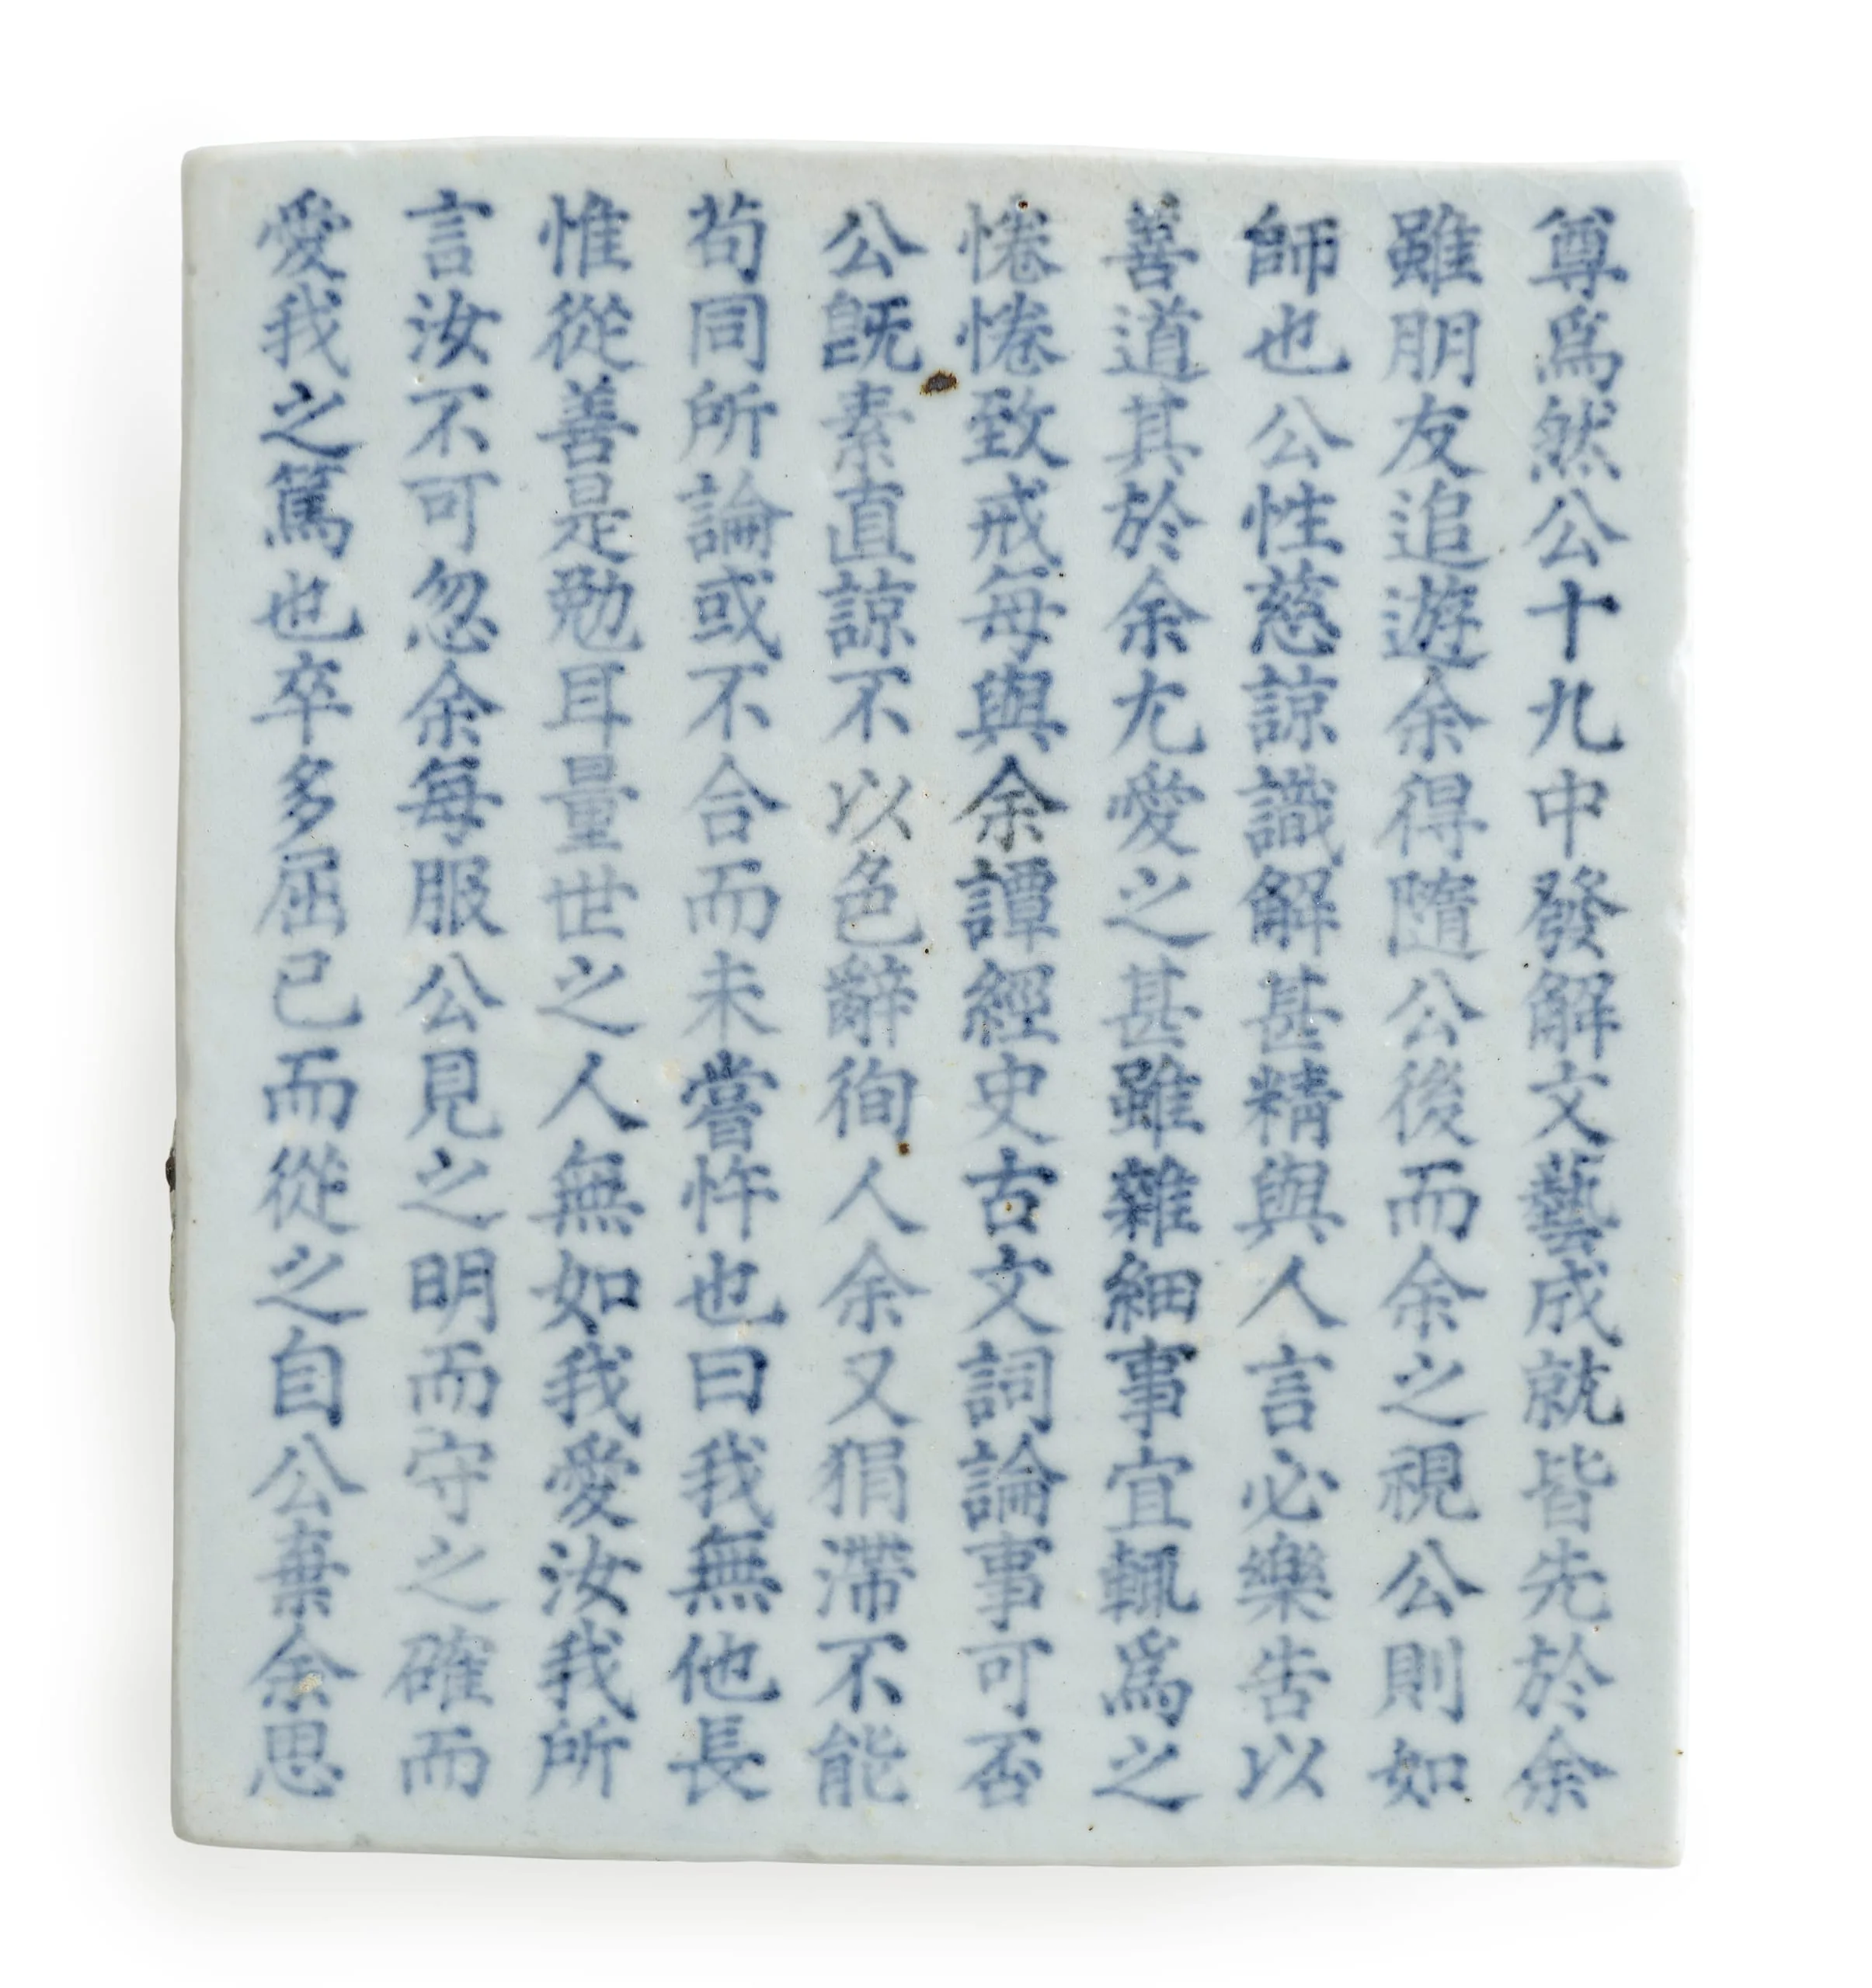 尊爲然公十九中發解文藝成就皆先於余
雖朋友追遊余得隨公後而余之視公則如
師也公性慈諒識解甚精與人言必樂告以
善道其於余尤愛之甚雖雜細事宜輒爲之
惓惓致戒每與余譚經史古文詞論事可否
公旣素直諒不以色辭徇人余又狷滯不能
苟同所論或不合而未嘗忤也曰我無他長
惟從善是勉耳量世之人無如我愛汝我所
言汝不可忽余每服公見之明而守之確而
愛我之篤也卒多屈己而從之自公棄余思